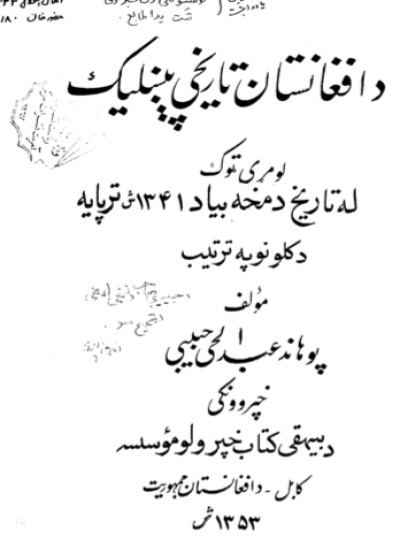 د افغانستان تاریخي پیښلیک
لومړی ټوک
له تاریخ دمخه بیا د ۱۳۴۱ ش تر پایه
د کلونو په ترتیب
مؤلف
پوهاند عبدالحی حبیبي
خپروونکی
د بیهقی کتاب خپرولو مؤسسه
کابل - د افغانستان جمهوریت
۱۳۵۳ ش